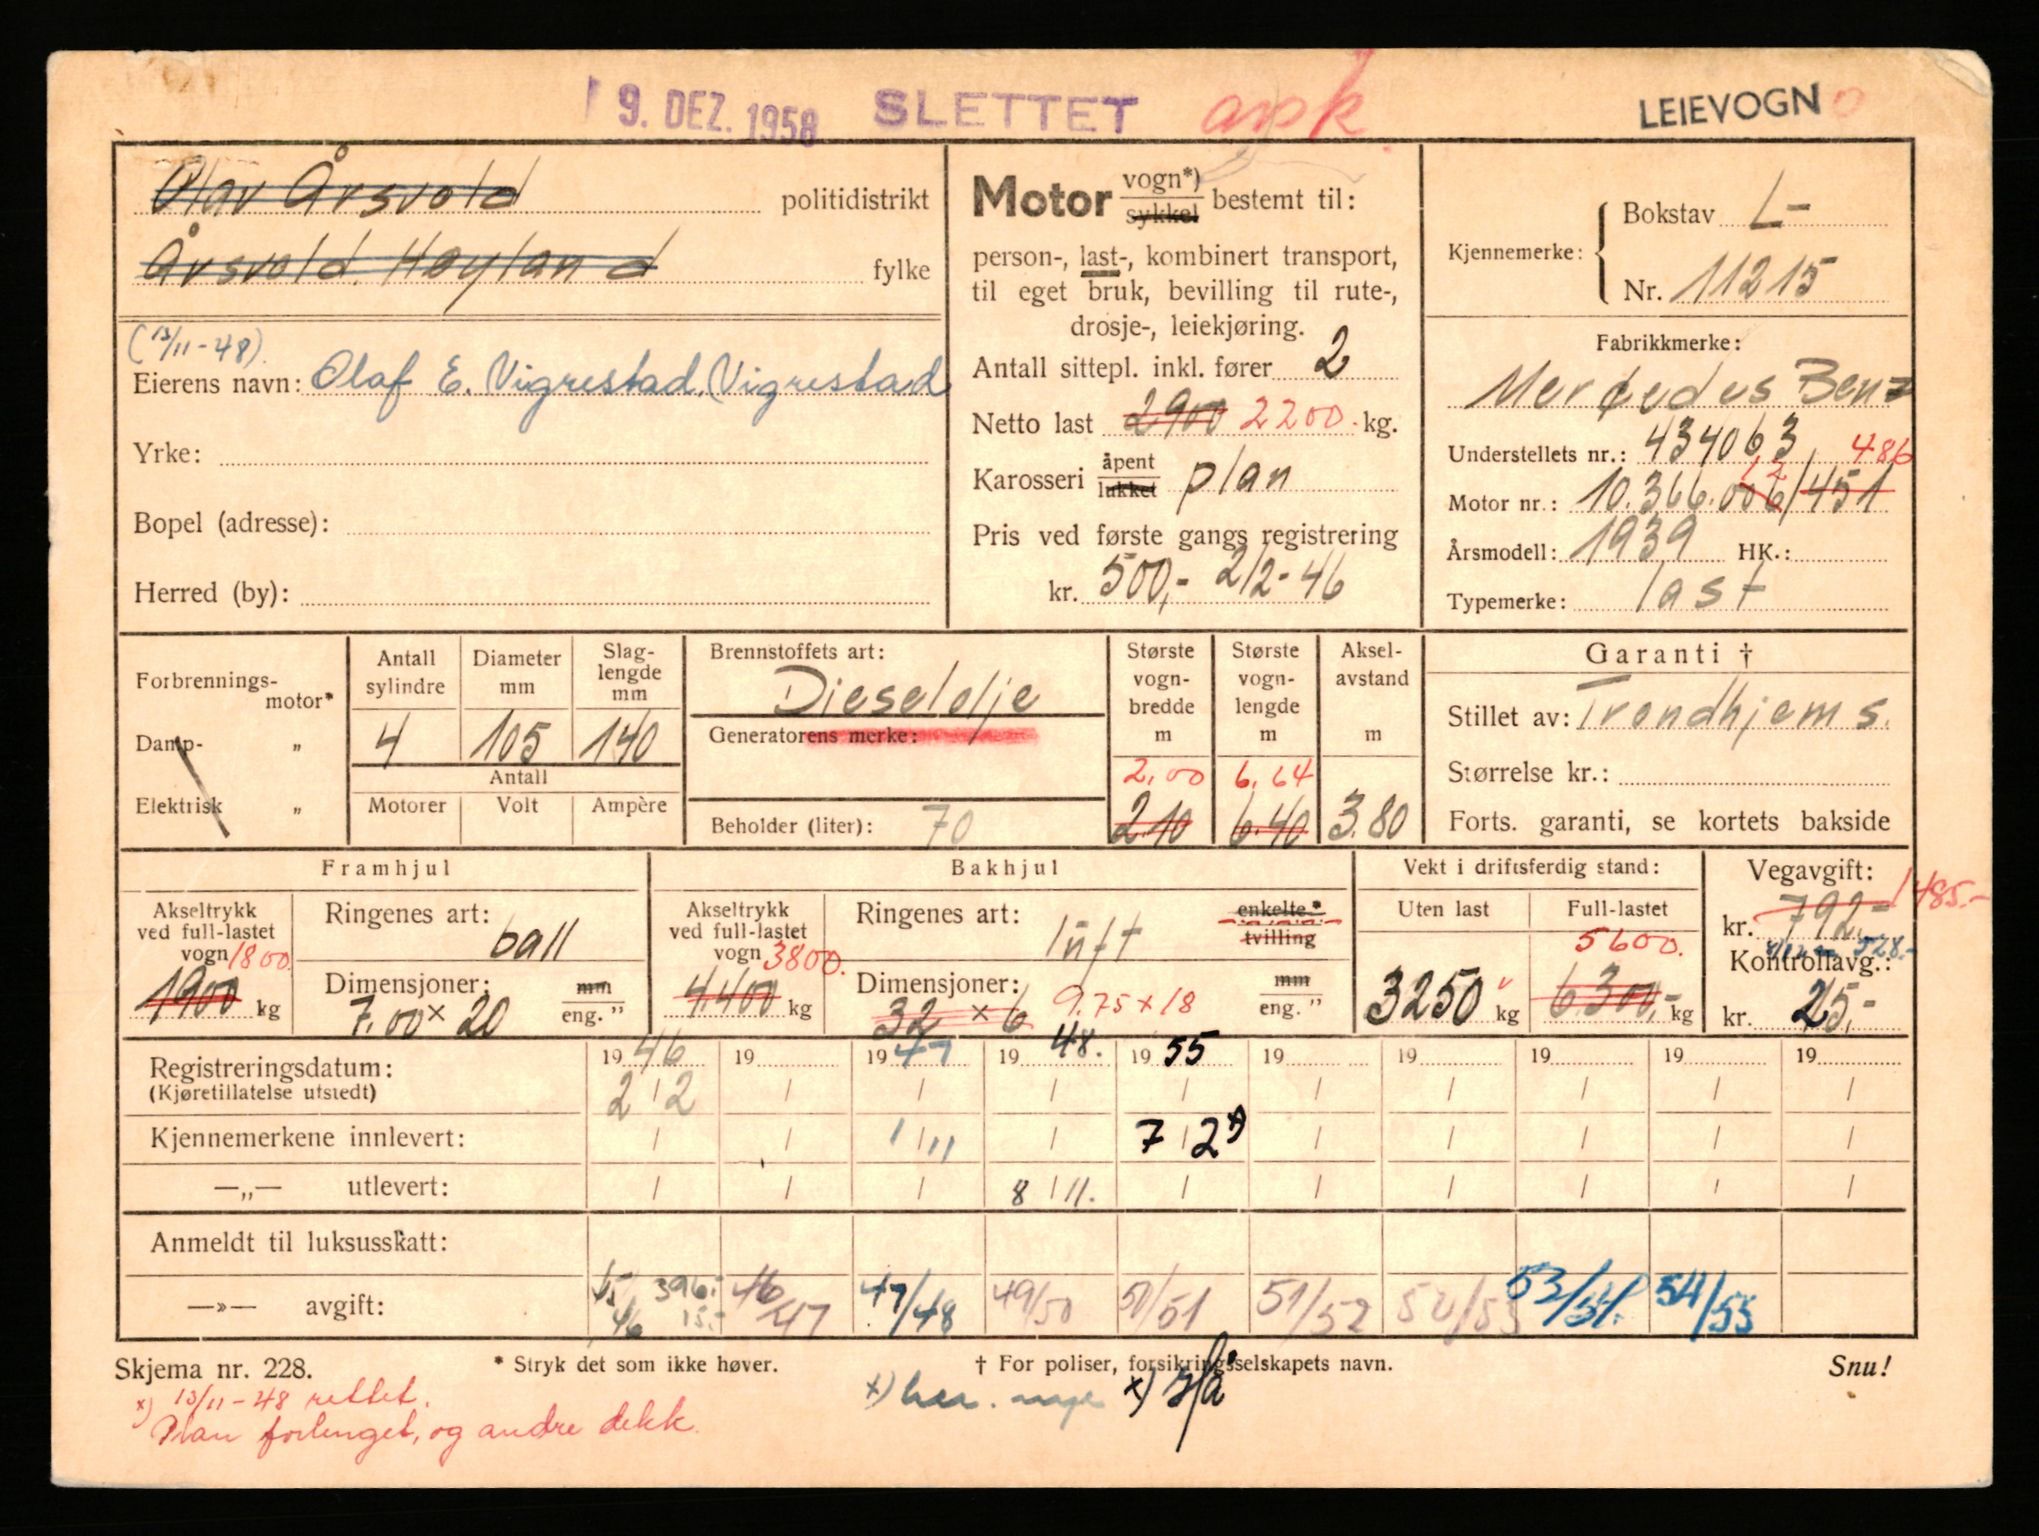 9. DEZ. 1958 SLETTET apk LEIEVOGN
Olav Årsvold politidistrikt
Årsvold. Høyland fylke
(13/11-48)
Eierens navn: Olaf E. Vigrestad, Vigrestad
Yrke:
Bopel (adresse):
Herred (by):
Motor vogn*) sykkel bestemt til:
person-, last-, kombinert transport,
til eget bruk, bevilling til rute-,
drosje-, leiekjøring.
Antall sittepl. inkl. fører 2
Netto last 2900 2200 kg.
Karosseri åpent lukket plan
Pris ved første gangs registrering
kr. 500,- 2/2-46
Kjennemerke: Bokstav L-
Nr. 11215
Fabrikkmerke:
Mercedes Benz
Understellets nr.: 434063 486
Motor nr.: 10.366.006/451
Årsmodell: 1939 HK.:
Typemerke: last
Forbrennings-motor*
Damp- „
Elektrisk „
Antall sylindre 4
Diameter mm 105
Slag-lengde mm 140
Antall
Motorer Volt Ampère
Brennstoffets art:
Dieselolje
Generatorens merke:
Beholder (liter): 70
Største vogn-bredde m 2,00 2.10
Største vogn-lengde m 6,64 6.40
Aksel-avstand m 3.80
Garanti †
Stillet av: Trondhjems.
Størrelse kr.:
Forts. garanti, se kortets bakside
Framhjul
Akseltrykk ved full-lastet vogn 1800 1900 kg
Ringenes art: ball
Dimensjoner: 7.00 x 20 mm eng. "
Bakhjul
Akseltrykk ved full-lastet vogn 3800. 4.400 kg
Ringenes art: luft enkelte.* tvilling
Dimensjoner: 32 x 6 9.75 x 18 mm eng. "
Vekt i driftsferdig stand:
Uten last 3250 kg
Full-lastet 5600. 6300,- kg
Vegavgift: 485.-
kr. 792,-
528.-
Kontrollavg.:
kr. 25,-
Registreringsdatum: 1946 19 1947 1948. 1955 19 19 19 19 19
(Kjøretillatelse utstedt) 2/2 / / / / / / / / /
Kjennemerkene innlevert: / / 1/11 / 7/2 x) / / / / /
—„— utlevert: / / / 8/11. / / / / / /
Anmeldt til luksusskatt:
—»— avgift: 46 396.- 15.- 46/47 47/48 49/50 50/51 51/52 52/53 53/54. 54/55
Skjema nr. 228. * Stryk det som ikke høver. † For poliser, forsikringsselskapets navn. Snu!
x) 13/11-48 rettet.
Plan forlenget, og andre dekk.
x) x)